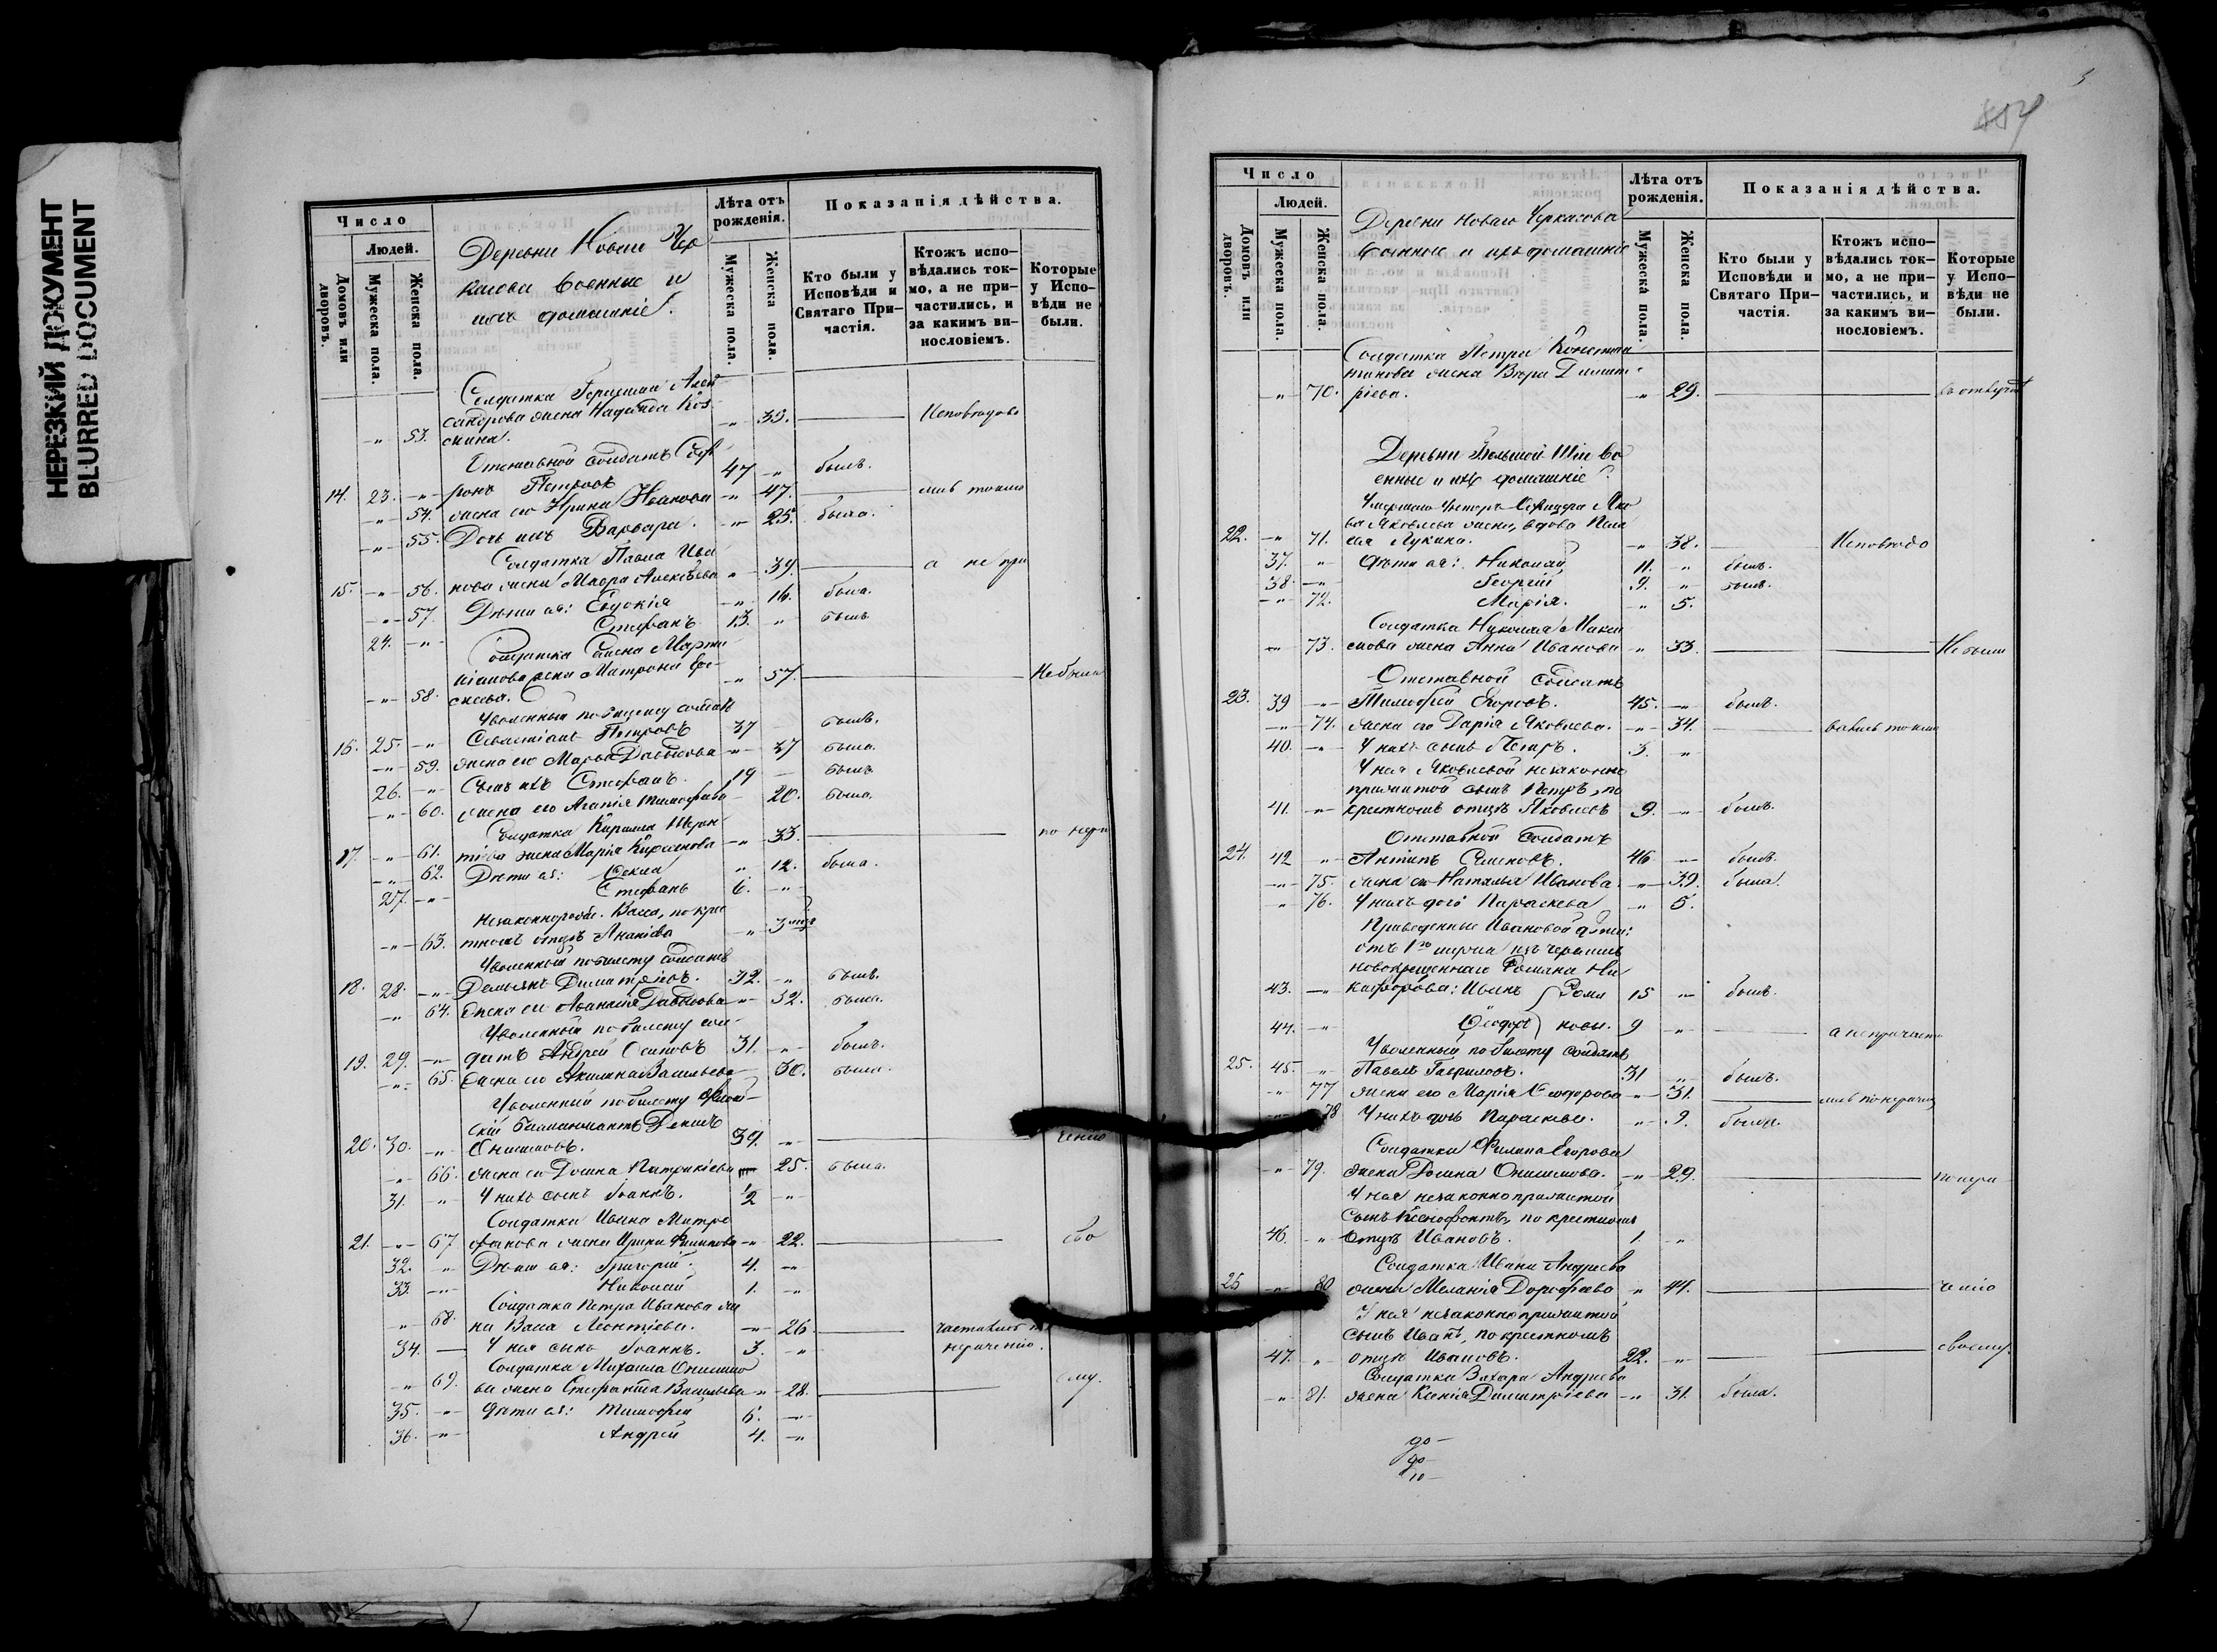 НЕРЕЗКИЙ ДОКУМЕНТ
BLURRED DOCUMENT
Число
Людей.
Домовъ или дворовъ.
Мужеска пола.
Женска пола.
Деревни Новыи Чер
касовы военные и
ихъ домашніе.
Лѣта отъ рожденія.
Мужеска пола.
Женска пола.
Показанія дѣйства.
Кто были у Исповѣди и Святаго Причастія.
Ктожъ исповѣдались токмо, а не причастились, и за какимъ винословіемъ.
Которые у Исповѣди не были.
Солдатка Алек
сандрова жена Надежда Коз
" 53. мина. " 33. Исповѣдова
Отставной солдатъ Соф
14. 23. " ронъ Петровъ 47 " былъ.
" 54. жена его Ирина Иванова " 47. лись токмо
" 55. Дочь ихъ Варвара. " 25. была.
Солдатка Павла Ива
15. " 56. нова жена Мавра Алексѣева " 39. а не при
" 57. Дѣти ея: Евдокія " 16. была.
24. " Стефанъ 13. " былъ
Солдатка Марти
ніанова жена Матрона
" 58. " 57. Не была
Уволенный по билету солдатъ
16. 25. " Севастіанъ Петровъ 37 былъ.
" 59. жена его Марья Давыдова " 37 была.
26. " Сынъ ихъ Стефанъ. 19 былъ
" 60. жена его Агапія Тимофеева 20. была.
Солдатка Кирилла Терен
17. " 61. тіева жена Марія Кирилова " 33. по нера
" 62. Дѣти ея: Ѳекла " 12. была.
27. " Стефанъ 6. "
Незаконнорожд. Васса, по кре
" 63. стномъ отцѣ Ананіева " 3
Уволенный по билету солдатъ
18. 28. " Демьянъ Димитріевъ. 32. " былъ.
" 64. жена его Аѳанасія Давыдова " 32. была.
Уволенный по билету сол
19. 29. " датъ Андрей Осиповъ 31. " былъ.
" 65. жена его Акилина Васильева 30. была.
Уволенный по билету
20. 30. " Онисимовъ. 39. " ченію
" 66. жена его Домна Патрикіева 25. была.
31. " У нихъ сынъ Іоаннъ. 1/2 "
Солдатка Ивана Митро
21. " 67 фанова жена Ирина Филипова " 22. сво
32. " Дѣти ея: Григорій. 4. "
33. " Николай 1. "
Солдатка Петра Иванова же
" 68. на Васса Леонтіева. " 26. частились по
34. У нея сынъ Іоаннъ. 3. " нераченію.
Солдатка Михаила Онисимо
" 69. ва жена Стефанида Васильева " 28. ему.
35. " Дѣти ея: Тимофей 6. "
36. " Андрей 4. "
Число
Людей.
Домовъ или дворовъ.
Мужеска пола.
Женска пола.
Деревни Новаго Черкасова
военные и ихъ домашніе
Лѣта отъ рожденія.
Мужеска пола.
Женска пола.
Показанія дѣйства.
Кто были у Исповѣди и Святаго Причастія.
Ктожъ исповѣдались токмо, а не причастились, и за какимъ винословіемъ.
Которые у Исповѣди не были.
Солдатка Петра Констан
тинова жена Вѣра Димит
" 70. ріева. " 29. въ отлучкѣ
Деревни Большой Шіи во
енные и ихъ домашніе.
Унтеръ-Офицера Яко
ва Яковлева жена, вдова Пела
22. " 71. гія Лукина. " 38. Исповѣдо
37. " Дѣти ея: Николай 11. " былъ.
38. " Георгій 9. " былъ.
" 72. Марія. " 5.
Солдатка Николая Макси
" 73. мова жена Анна Иванова " 33. Не были
Отставной солдатъ
23. 39 " Тимофей Егоровъ. 45. " былъ.
" 74. жена его Дарія Яковлева. " 34. вались токмо
40. " У нихъ сынъ Петръ. 3. "
У нея Яковлевой незаконно
прижитой сынъ Петръ, по
41. " крестномъ отцѣ Яковлевъ 9. " былъ.
Отставной солдатъ
24. 42 " Антипъ Семеновъ. 46 " былъ.
" 75. жена его Наталья Иванова. " 39. была.
" 76. У нихъ дочь Параскева " 5.
Приведенные Ивановой дѣти:
отъ 1го мужа изъ черемисъ
новокрещеннаго Романа Ни
43. " кифорова: Иванъ Рома 15 " былъ.
44. " Ѳеодоръ новы. 9 " а не причасти
Уволенный по билету солдатъ
25. 45. " Павелъ Гавриловъ. 31 " былъ.
" 77 жена его Марія Ѳеодорова " 31. лись по нерачен
" 78 У нихъ дочь Параскева. " 9. была.
Солдатка Филипа Егорова
" 79. жена Домна Онисимова. " 29. по нера
У нея незаконно прижитой
сынъ Ксенофонтъ, по крестномъ
46. " отцѣ Ивановъ. 1. "
Солдатка Ивана Андреева
26 " 80 жена Меланія Дорофеева " 44. ченію
У нея незаконно прижитой
сынъ Иванъ, по крестномъ
47. " отцѣ Ивановъ. 22. " своему.
Солдатка Захара Андреева
" 81. жена Ксенія Димитріева " 31. была.